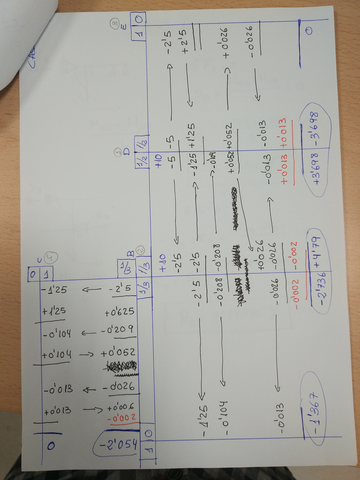 CAL
④ ① ② ③
C B D E
0 1 1/3 1/3 1/3 1/2 1/2 1 0
1 0
+10 +10
-2'5 ← -5 -5 → -2'5
-1'25 ← -2'5 -2'5 → -1'25 +1'25 ← +2'5
-0'104 ← -0'208 -0'208
+0'052 +0'052 → +0'026
+0'026 ← -0'013 -0'013 ← -0'026
-0'013 ← -0'026 -0'026 → -0'013
-0'002 -0'002 +0'013 +0'013
-1'367 -2'736 +3'698 -3'698 0
-1'25 ← -2'5
+1'25 +0'625
-0'104 ← -0'209
+0'104 → +0'052
-0'013 ← -0'026
+0'013 → +0'006
-0'002
0 -2'054